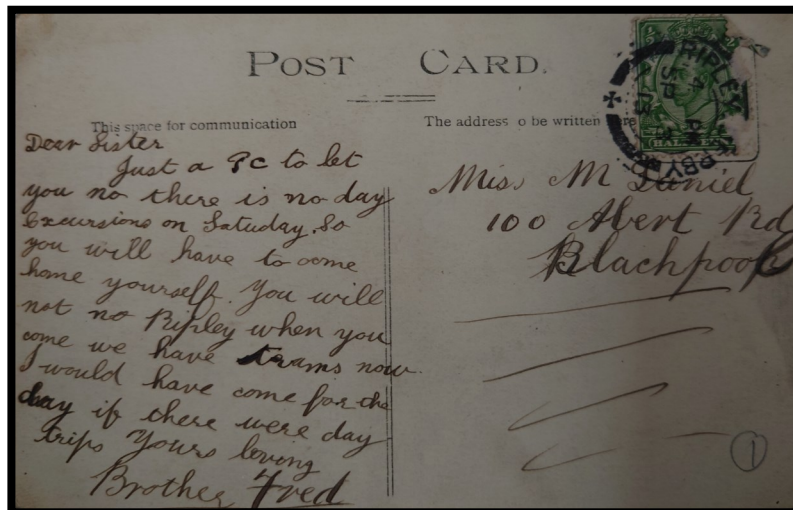 POST CARD.
This space for communication
The address o be written ere
RIPLEY
DERBY
SP 4
13
HALF
Dear Sister
Just a PC to let
you no there is no day
Excursions on Satuday. So
you will have to come
home yourself. You will
not no Ripley when you
come we have trams now.
I would have come for the
day if there were day
trips Yours loving
Brother Fred
Miss M Daniel
100 Abert Rd
Blackpool
1